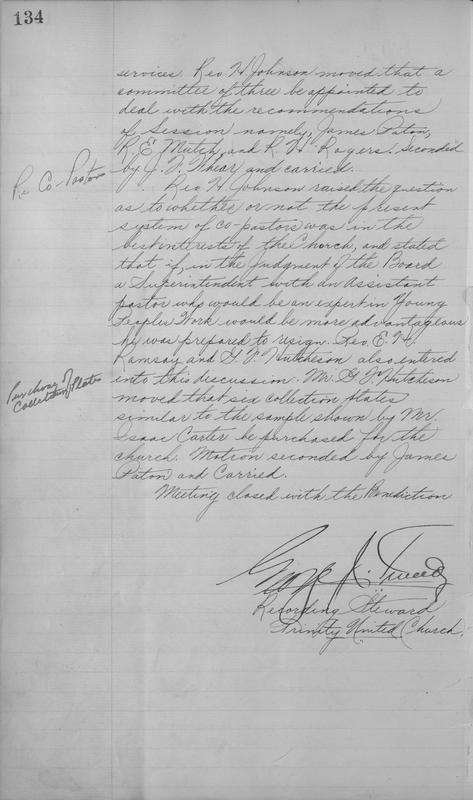 134
services. Rev H. Johnson moved that a
committee of three be appointed to
deal with the recommendations
of Session namely, James Paton,
R. E. Mutch, and R. H. Rogers. Seconded
by J. F. and carried.
Re Co-Pastor
Rev H. Johnson raised the question
as to whether or not the present
system of co-pastor was in the
best interests of the Church, and stated
that if, in the judgment of the Board
a Superintendent with an Assistant
pastor who would be an expert in Young
Peoples Work would be more advantageous
he was prepared to resign. Geo. E. H.
Ramsay and G. F. Hutcheson also entered
Purchase of
Collection Plates
into this discussion. Mr. G. F. Hutcheson
moved that six collection plates
similar to the sample shown by Mr.
Isaac Carter be purchased for the
church. Motion seconded by James
Paton and Carried.
Meeting closed with the Benediction
Geo. K. Tweedy
Recording Steward
Trinity United Church.